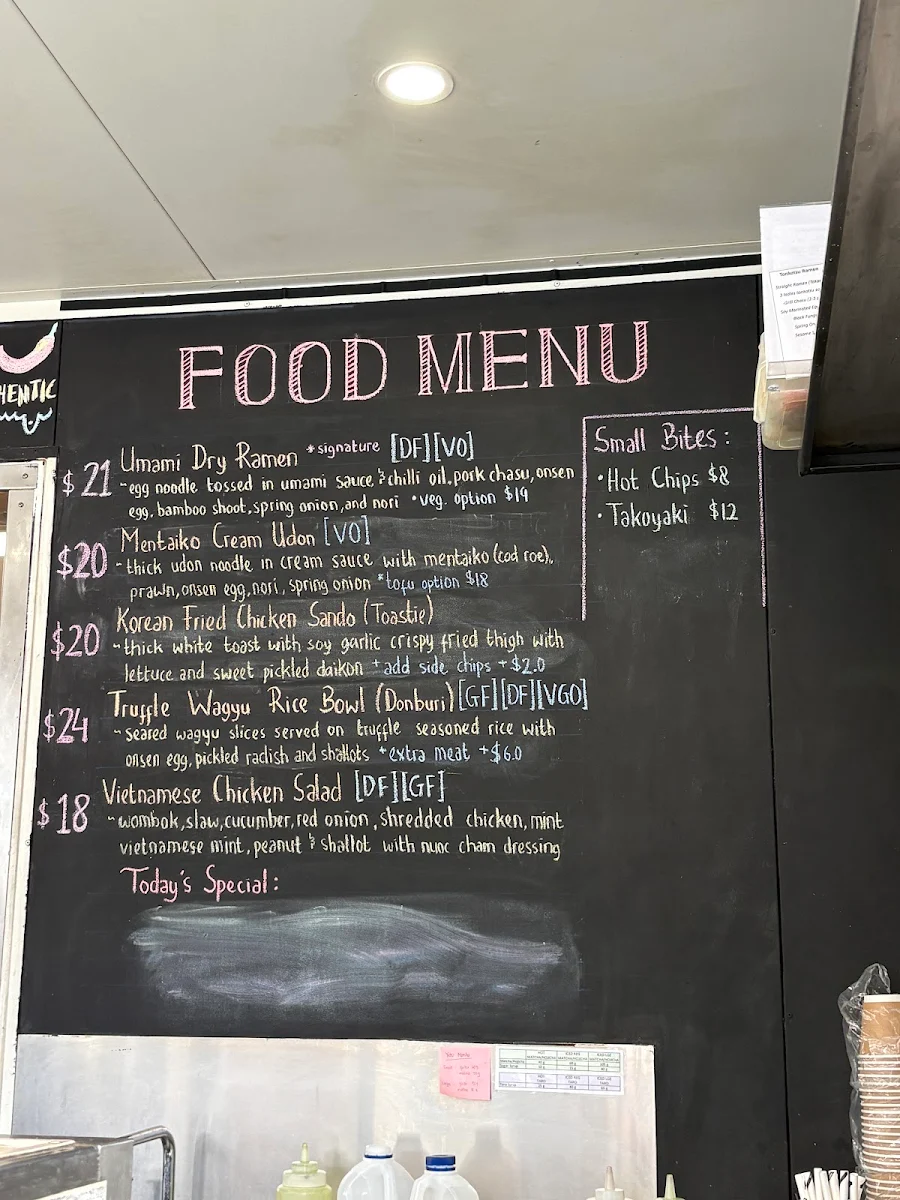 HENTIC
FOOD MENU
$21 Umami Dry Ramen *signature [DF][VO]
~egg noodle tossed in umami sauce & chilli oil, pork chasu, onsen
egg, bamboo shoot, spring onion, and nori *veg. option $19
$20 Mentaiko Cream Udon [VO]
~thick udon noodle in cream sauce with mentaiko (cod roe),
prawn, onsen egg, nori, spring onion *tofu option $18
$20 Korean Fried Chicken Sando (Toastie)
~thick white toast with soy garlic crispy fried thigh with
lettuce and sweet pickled daikon *add side chips +$2.0
$24 Truffle Wagyu Rice Bowl (Donburi) [GF][DF][VGO]
~seared wagyu slices served on truffle seasoned rice with
onsen egg, pickled radish and shallots *extra meat +$6.0
$18 Vietnamese Chicken Salad [DF][GF]
~wombok, slaw, cucumber, red onion, shredded chicken, mint
vietnamese mint, peanut & shallot with nuoc cham dressing
Today's Special:
Small Bites:
•Hot Chips $8
•Takoyaki $12
Tonkotsu Ramen